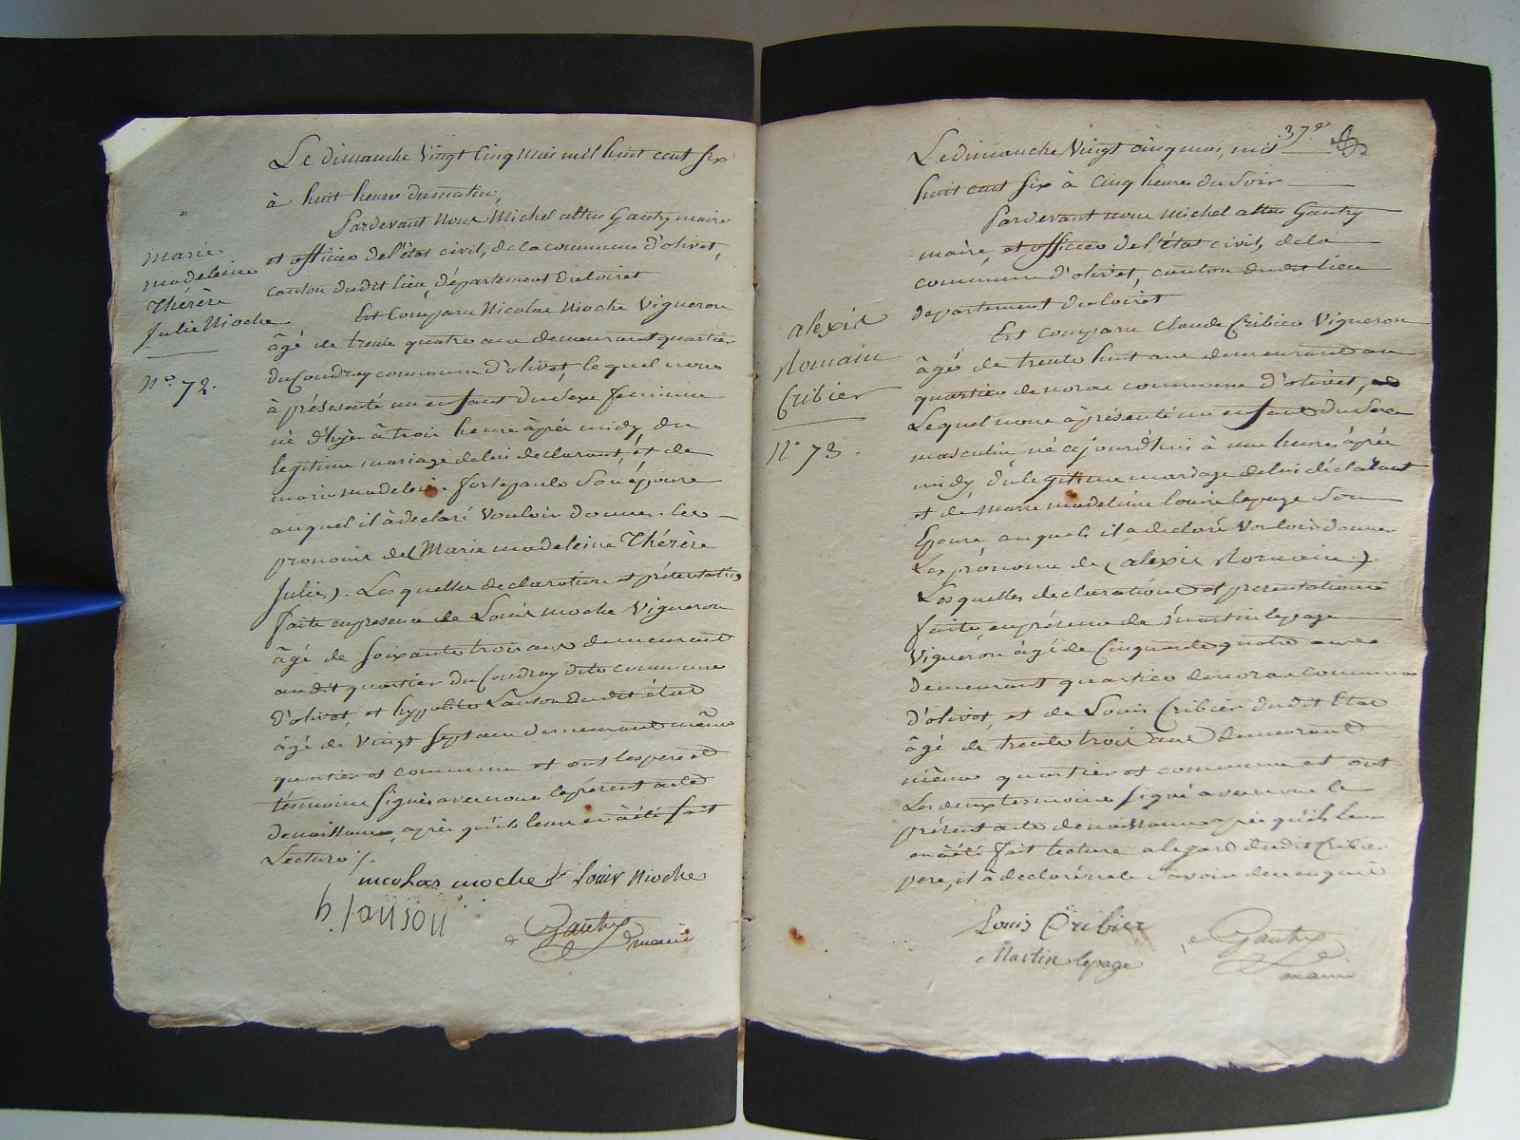 Le dimanche Vingt Cinq mai mil huit cent six
à huit heures du matin,
Pardevant Nous Michel Gautry maire
et officier de l'état civil, de la commune d'olivet,
canton dudit lieu, département du loiret
Est Comparu Nicolas Nioche Vigneron
âgé de trente quatre ans demeurant quartier
du Coudray commune d'olivet, lequel nous
à présenté un enfant du sexe feminin
né d'hyer à trois heure après midy du
legitime mariage de lui declarant, et de
marie madeleine son épouse
auquel il à declaré Vouloir donner les
prenoms de (Marie madeleine Thérèse
Julie). Lesquelles declaration et présentation
faite en presence de Louis nioche Vigneron
âgé de soixante trois ans demeurant
audit quartier du Coudray dite commune
d'olivet, et hyppolite Lanson dudit état
âgé de Vingt sept ans demeurant même
quartier et commune et ont les pere et
témoins signés avec nous le présent acte
de naissance, après qu'il leur en à été fait
Lecture /.
nicolas nioche Louis Nioche
h. lanson
Gautry
maire
marie
madeleine
Thérèse
Julie Nioche
N.° 72.
37
Le dimanche Vingt cinq mai, mil
huit cent six à Cinq heures du soir
Pardevant nous Michel Gautry
maire, et officier de l'état civil, de la
commune d'olivet, canton dudit lieu
departement du loiret
Est comparu Claude Cribier Vigneron
âgé de trente huit ans demeurant au
quartier de commune d'olivet,
Lequel nous à présenté un enfant du sexe
masculin né cejourd'hui à une heure après
midy du legitime mariage de lui déclarant
et de Marie madeleine louise lepage son
Epouse auquel il a declaré Vouloir donner
Les prénoms de (alexis Romain)
Lesquelles declaration et presentation
faite, en présence de martin lepage
Vigneron âgé de Cinquante quatre ans
demeurant quartier commune
d'olivet, et de Louis Cribier dudit Etat
âgé de trente trois ans demeurant
même quartier et commune et ont
Les deux temoins signé avec nous le
présent acte de naissance après qu'il leur
en à été fait lecture a legard dudit Cribier
pere, il à declaré ne le savoir de ce enquis
Louis Cribier
Martin lepage
Gautry
maire
alexis
Romain
Cribier
N.° 73.